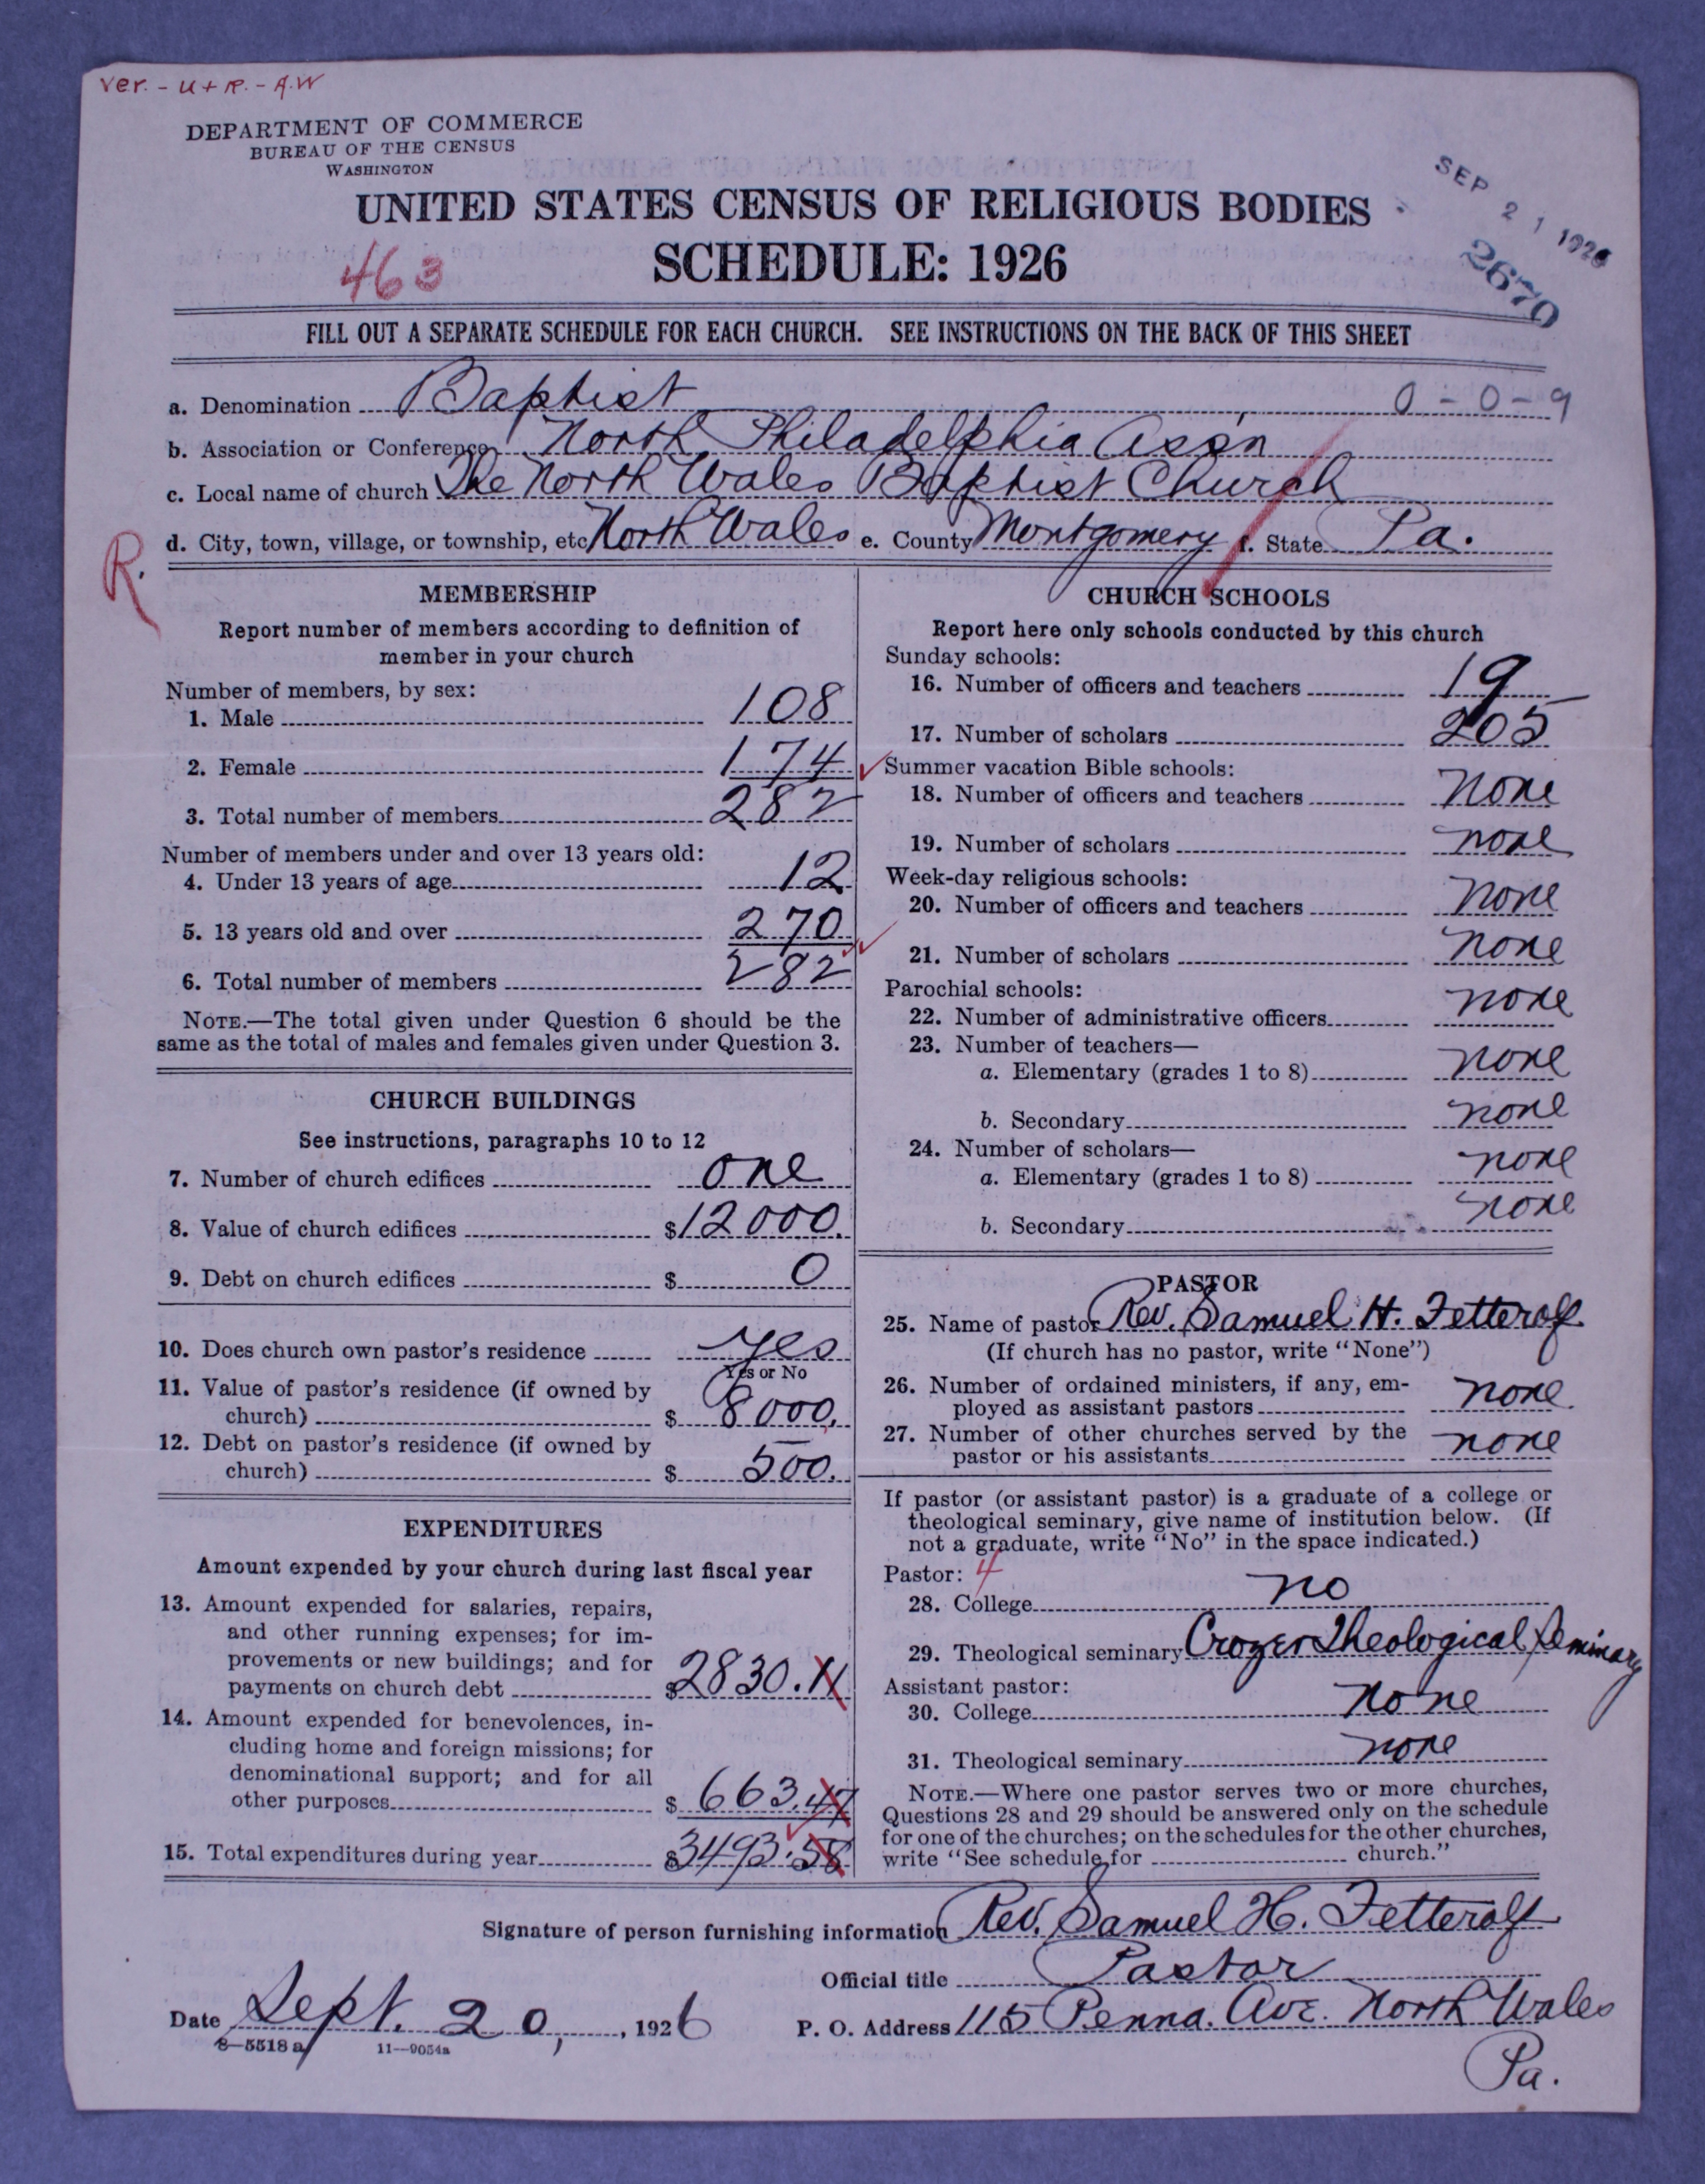 ver. - U + R. - A.W
DEPARTMENT OF COMMERCE
BUREAU OF THE CENSUS
WASHINGTON
UNITED STATES CENSUS OF RELIGIOUS BODIES
SEP 21 1926
463
SCHEDULE: 1926
2670
FILL OUT A SEPARATE SCHEDULE FOR EACH CHURCH. SEE INSTRUCTIONS ON THE BACK OF THIS SHEET
a. Denomination Baptist 0-0-9
b. Association or Conference North Philadelphia Ass'n
c. Local name of church The North Wales Baptist Church
d. City, town, village, or township, etc North Wales e. County Montgomery f. State Pa.
R.
MEMBERSHIP
Report number of members according to definition of
member in your church
Number of members, by sex:
1. Male 108
2. Female 174
3. Total number of members 282
Number of members under and over 13 years old:
4. Under 13 years of age 12
5. 13 years old and over 270
6. Total number of members 282
NOTE.—The total given under Question 6 should be the
same as the total of males and females given under Question 3.
CHURCH BUILDINGS
See instructions, paragraphs 10 to 12
7. Number of church edifices one
8. Value of church edifices $12000.
9. Debt on church edifices $ 0
10. Does church own pastor's residence yes
Yes or No
11. Value of pastor's residence (if owned by
church) $ 8000.
12. Debt on pastor's residence (if owned by
church) $ 500.
EXPENDITURES
Amount expended by your church during last fiscal year
13. Amount expended for salaries, repairs,
and other running expenses; for im-
provements or new buildings; and for
payments on church debt $2830.11
14. Amount expended for benevolences, in-
cluding home and foreign missions; for
denominational support; and for all
other purposes $ 663.47
15. Total expenditures during year $3493.58
CHURCH SCHOOLS
Report here only schools conducted by this church
Sunday schools:
16. Number of officers and teachers 19
17. Number of scholars 205
Summer vacation Bible schools:
18. Number of officers and teachers None
19. Number of scholars none
Week-day religious schools:
20. Number of officers and teachers none
21. Number of scholars none
Parochial schools:
22. Number of administrative officers none
23. Number of teachers—
a. Elementary (grades 1 to 8) none
b. Secondary none
24. Number of scholars—
a. Elementary (grades 1 to 8) none
b. Secondary none
PASTOR
25. Name of pastor Rev. Samuel H. Fetterolf
(If church has no pastor, write "None")
26. Number of ordained ministers, if any, em-
ployed as assistant pastors none
27. Number of other churches served by the
pastor or his assistants none
If pastor (or assistant pastor) is a graduate of a college or
theological seminary, give name of institution below. (If
not a graduate, write "No" in the space indicated.)
Pastor: 4
28. College no
29. Theological seminary Crozer Theological Seminary
Assistant pastor:
30. College none
31. Theological seminary none
NOTE.—Where one pastor serves two or more churches,
Questions 28 and 29 should be answered only on the schedule
for one of the churches; on the schedules for the other churches,
write "See schedule for church."
Signature of person furnishing information Rev. Samuel H. Fetterolf
Official title Pastor
Date Sept. 20, 1926 P. O. Address 115 Penna. Ave. North Wales
Pa.
8—5518 a 11—9054a